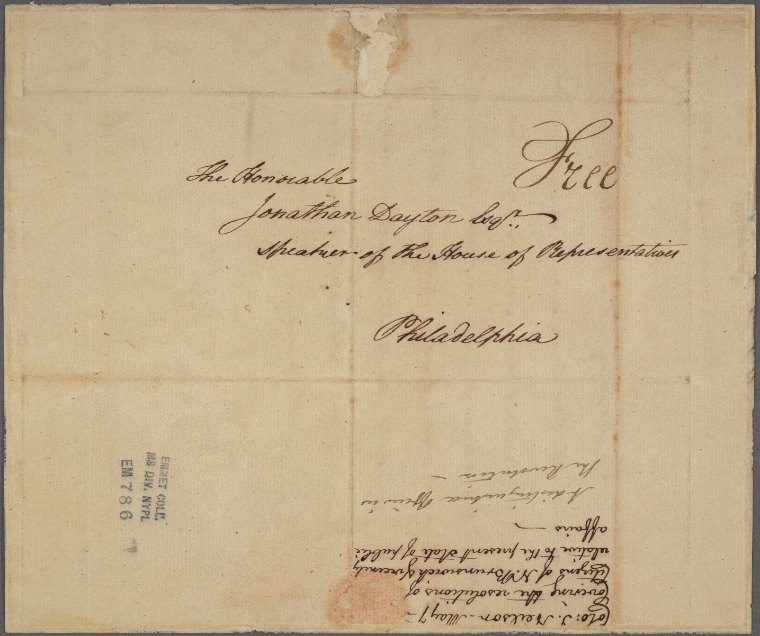 Free
The Honorable
Jonathan Dayton Esqr.
Speaker of the House of Representatives
Philadelphia
EMMET COLL.
MS DIV. NYPL
EM 786
Colo: J. Neilson May 7
Covering the resolutions of
Citizens of N. Brunswick & vicinity
relative to the present state of public
affairs
A distinguished Officer in
the Revolution